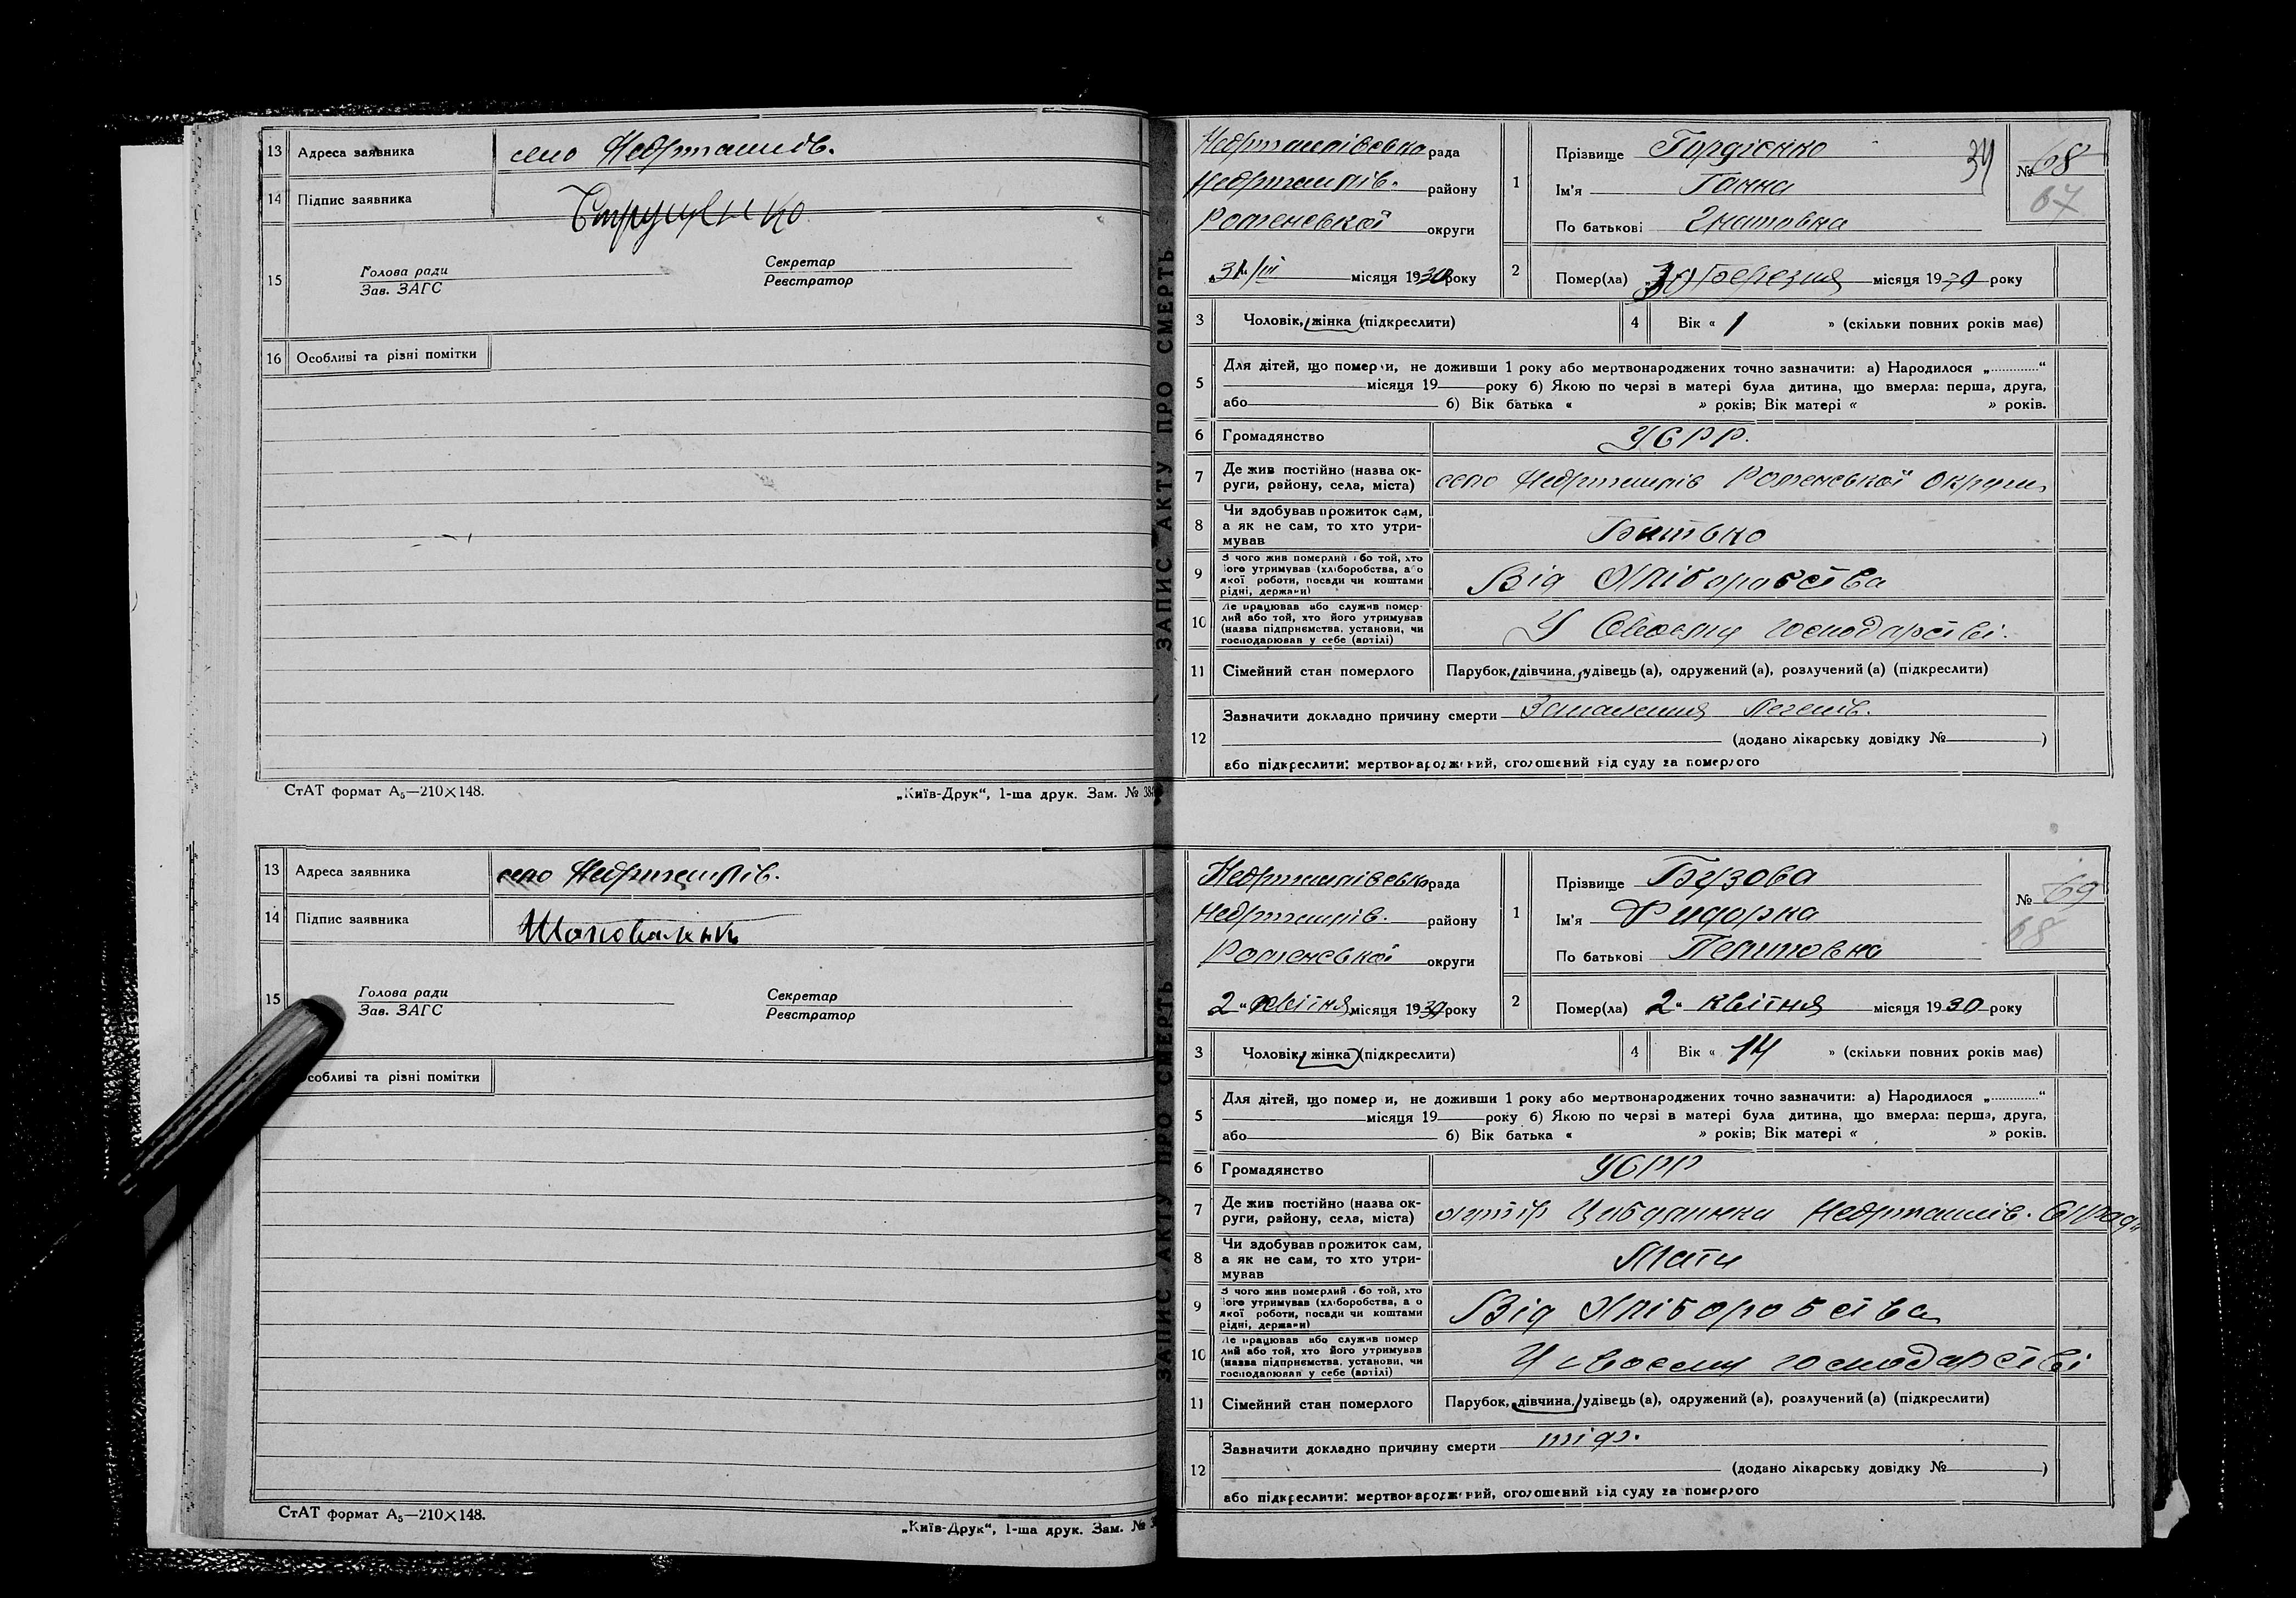 13 Адреса заявника село Недригайлів.
14 Підпис заявника
15 Голова ради Секретар
Зав. ЗАГС Реєстратор
16 Особливі та різні помітки
СтАТ формат А₅—210×148. „Київ-Друк“, 1-ша друк. Зам. №
13 Адреса заявника село Недригайлів.
14 Підпис заявника
15 Голова ради Секретар
Зав. ЗАГС Реєстратор
собливі та різні помітки
СтАТ формат А₅—210×148. „Київ-Друк“, 1-ша друк. Зам. №
ЗАПИС АКТУ ПРО СМЕРТЬ
ЗАПИС АКТУ ПРО СМЕРТЬ
34
№ 68
67
Недригайлівська рада
Недригайлів. району
Роменської округи
„31“/III місяця 1930 року
1 Прізвище Гордієнко
Ім'я Ганна
По батькові Гнатовна
2 Помер(ла) Березня місяця 1930 року
3 Чоловік, жінка (підкреслити)
4 Вік « 1 » (скільки повних років має)
5 Для дітей, що померли, не доживши 1 року або мертвонароджених точно зазначити: а) Народилося „............“
місяця 19 року б) Якою по черзі в матері була дитина, що вмерла: перша, друга,
або б) Вік батька « » років; Вік матері « » років.
6 Громадянство УСРР.
7 Де жив постійно (назва ок-
руги, району, села, міста) село Недригайлів Роменської Округи
8 Чи здобував прожиток сам,
а як не сам, то хто утри-
мував Батько
9 З чого жив померлий або той, хто
його утримував (хліборобства, або
якої роботи, посади чи коштами
рідні, держави) Від Хліборобства
10 Де працював або служив помер-
лий або той, хто його утримував
(назва підприємства, установи, чи
господарював у себе (артілі) У Своєму господарстві.
11 Сімейний стан померлого Парубок, дівчина, удівець (а), одружений (а), розлучений (а) (підкреслити)
12 Зазначити докладно причину смерти Запалення Легенів.
(додано лікарську довідку № )
або підкреслити: мертвонароджений, оголошений від суду за померлого
№ 69
68
Недригайлівська рада
Недригайлів. району
Роменської округи
2 “ квітня місяця 1930 року
1 Прізвище Бузова
Ім'я Фидорка
По батькові
2 Помер(ла) 2 “ квітня місяця 1930 року
3 Чоловік, жінка (підкреслити)
4 Вік « 14 » (скільки повних років має)
5 Для дітей, що померли, не доживши 1 року або мертвонароджених точно зазначити: а) Народилося „............“
місяця 19 року б) Якою по черзі в матері була дитина, що вмерла: перша, друга,
або б) Вік батька « » років; Вік матері « » років.
6 Громадянство УСРР
7 Де жив постійно (назва ок-
руги, району, села, міста) хутір Недригайлів.
8 Чи здобував прожиток сам,
а як не сам, то хто утри-
мував Мати
9 З чого жив померлий або той, хто
його утримував (хліборобства, або
якої роботи, посади чи коштами
рідні, держави) Від Хліборобства
10 Де працював або служив помер
лий або той, хто його утримував
(назва підприємства, установи, чи
господарював у себе (артілі) У своєму господарстві
11 Сімейний стан померлого Парубок, дівчина, удівець (а), одружений (а), розлучений (а) (підкреслити)
12 Зазначити докладно причину смерти тіф.
(додано лікарську довідку № )
або підкреслити: мертвонароджений, оголошений від суду за померлого